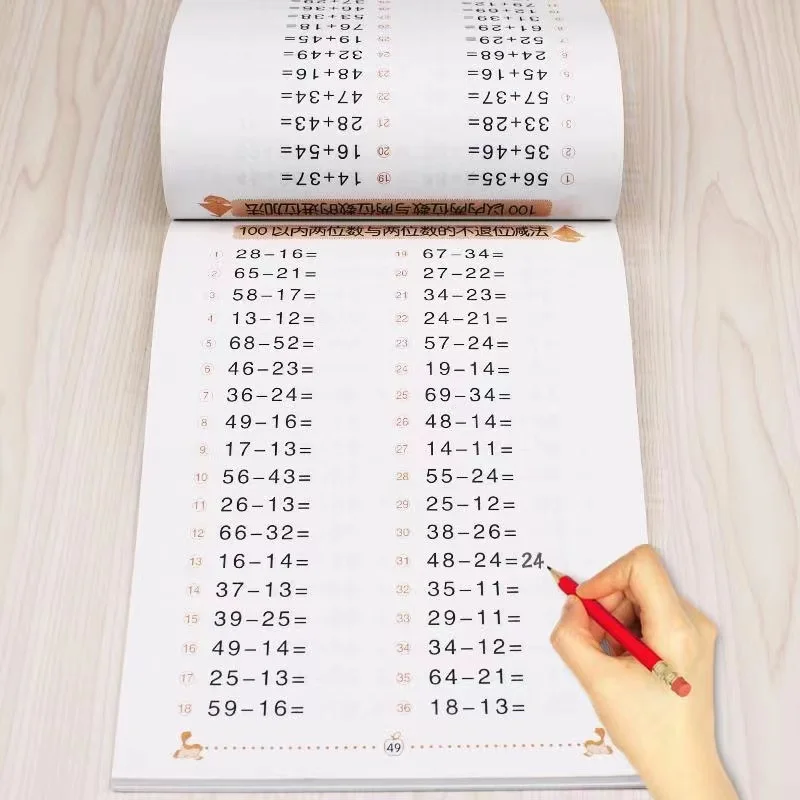 100以内两位数与两位数的进位加法
① 56+35=
② 35+46=
3 33+28=
4 57+37=
5 45+16=
6 24+68=
7 52+29=
8 61+29=
9 31+39=
⑲ 14+37=
⑳ 16+54=
21 28+43=
22 47+34=
23 48+16=
24 32+49=
25 19+45=
26 76+18=
27 53+38=
100以内两位数与两位数的不退位减法
1 28−16=
2 65−21=
3 58−17=
4 13−12=
5 68−52=
6 46−23=
7 36−24=
8 49−16=
9 17−13=
10 56−43=
11 26−13=
12 66−32=
13 16−14=
14 37−13=
15 39−25=
16 49−14=
17 25−13=
18 59−16=
19 67−34=
20 27−22=
21 34−23=
22 24−21=
23 57−24=
24 19−14=
25 69−34=
26 48−14=
27 14−11=
28 55−24=
29 25−12=
30 38−26=
31 48−24=24
32 35−11=
33 29−11=
34 34−12=
35 64−21=
36 18−13=
49